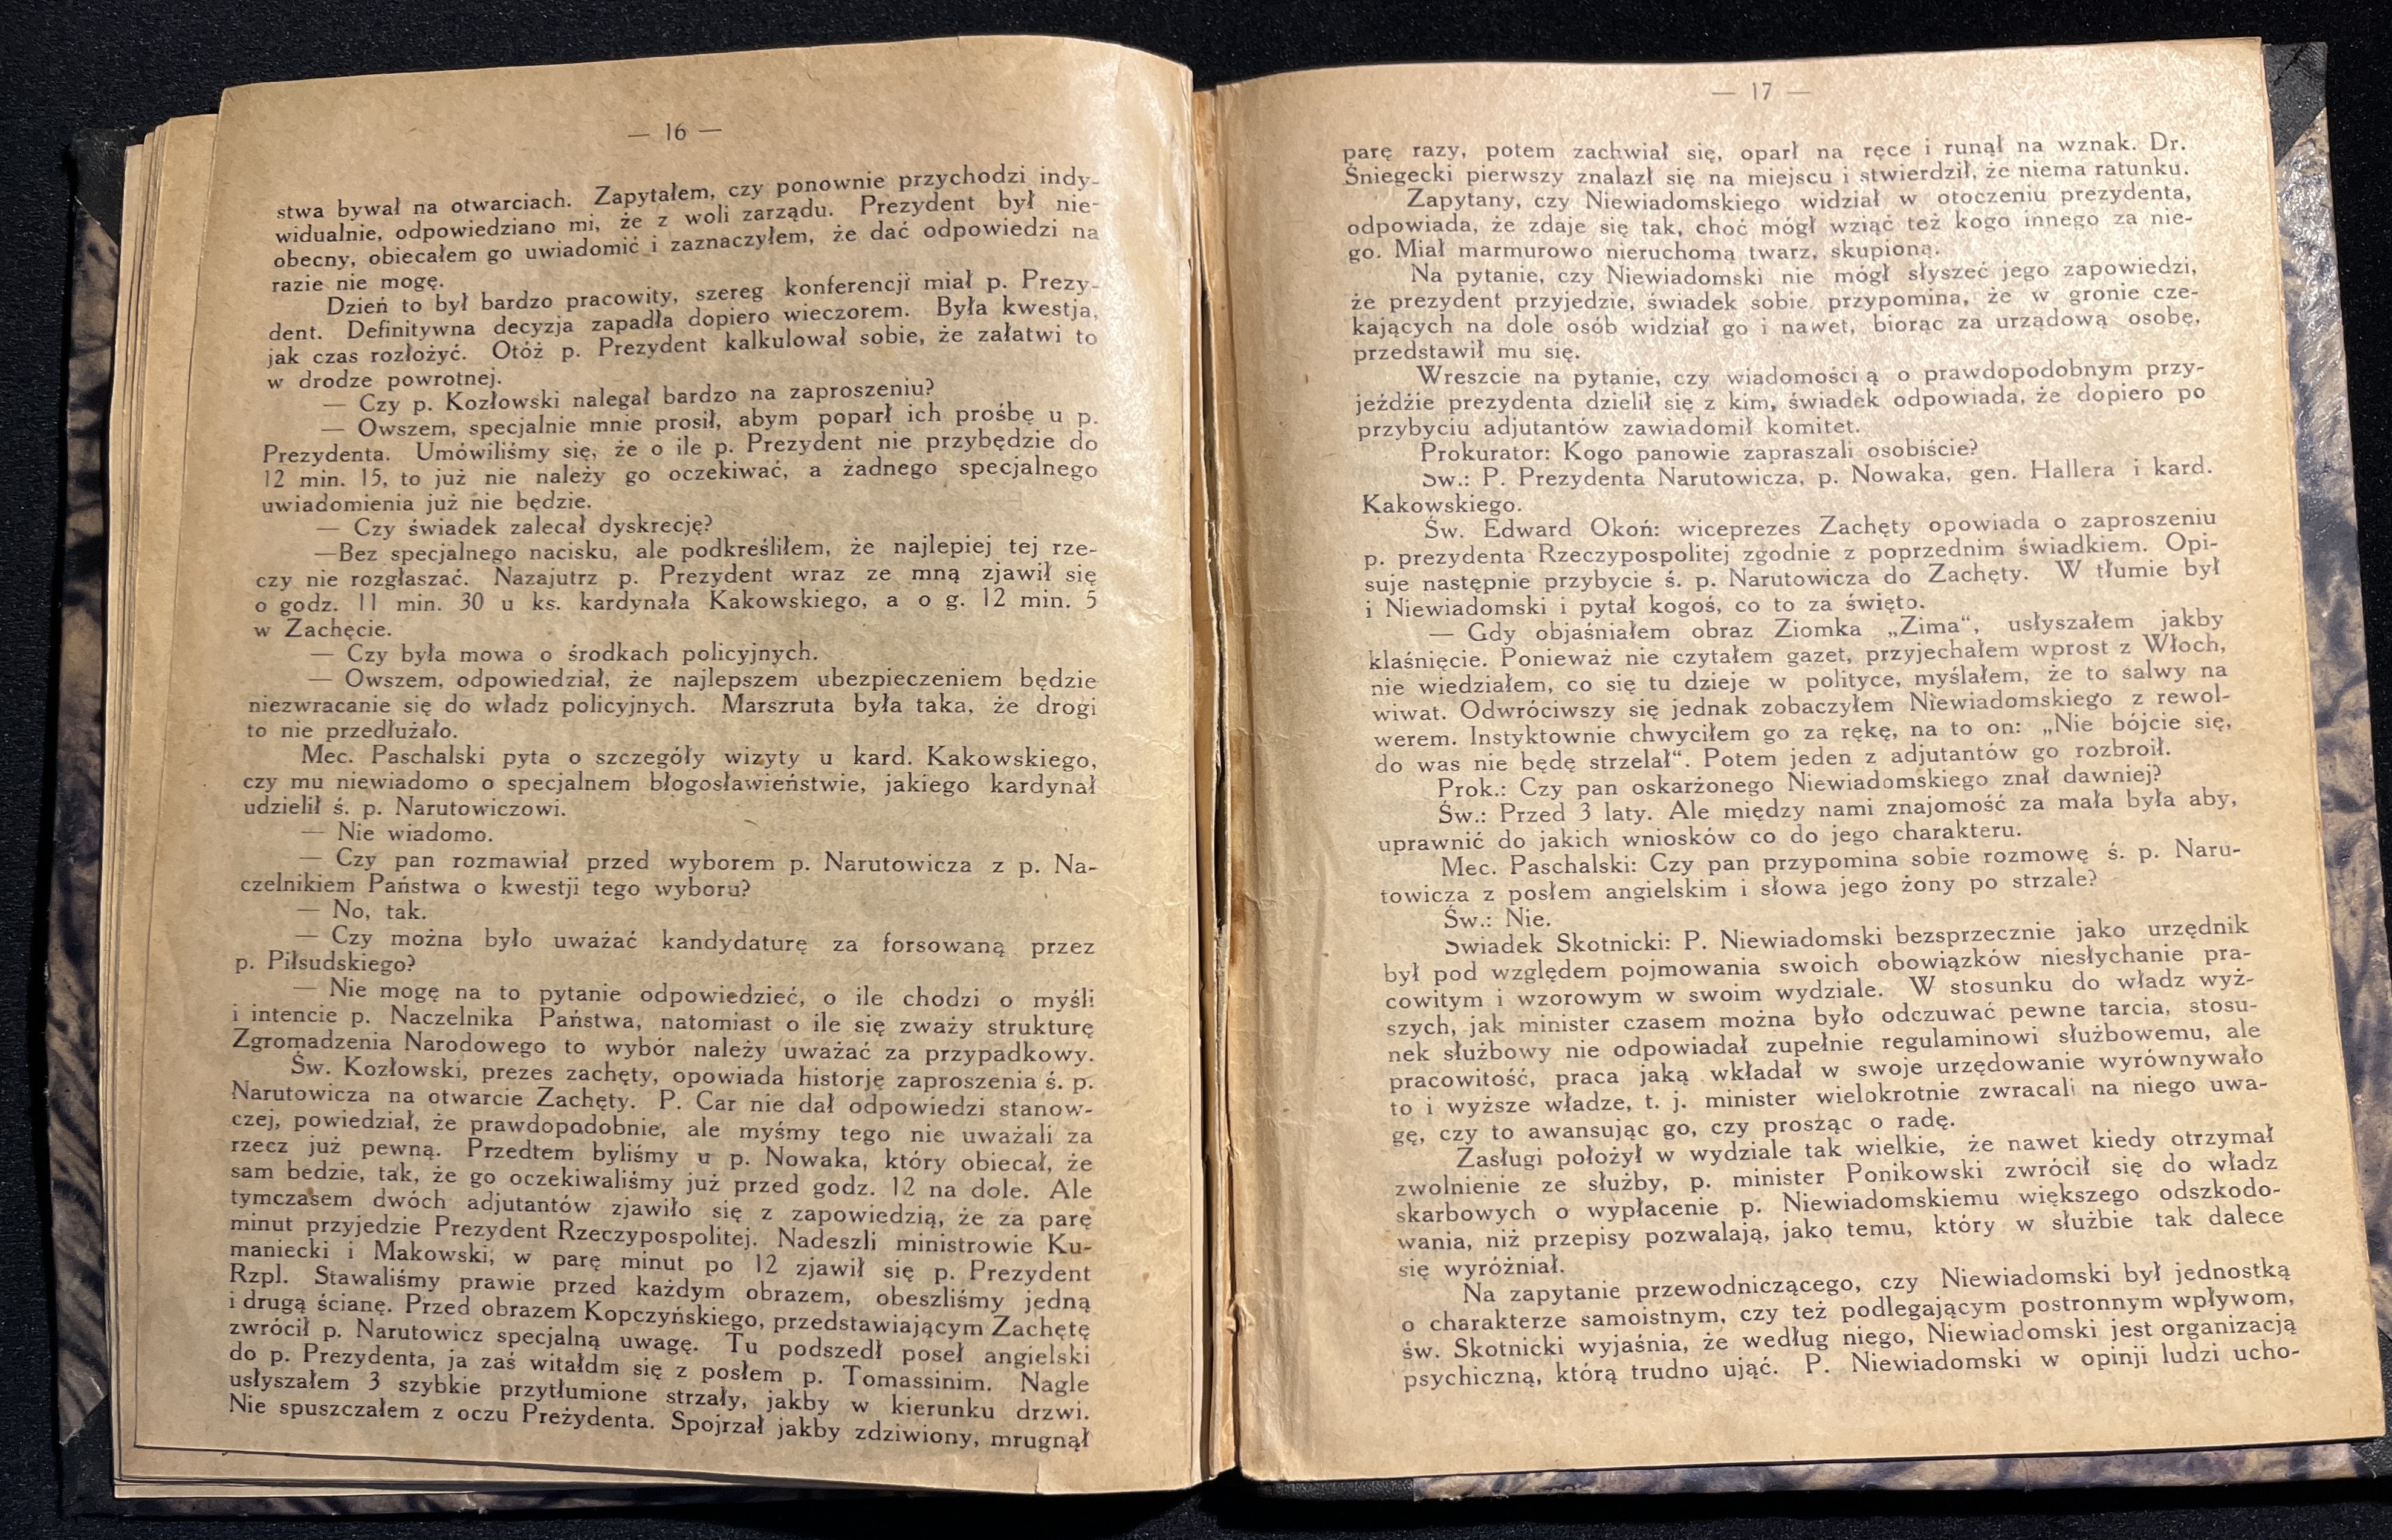 — 16 —
stwa bywał na otwarciach. Zapytałem, czy ponownie przychodzi indy-
widualnie, odpowiedziano mi, że z woli zarządu. Prezydent był nie-
obecny, obiecałem go uwiadomić i zaznaczyłem, że dać odpowiedzi na
razie nie mogę.
Dzień to był bardzo pracowity, szereg konferencji miał p. Prezy-
dent. Definitywna decyzja zapadła dopiero wieczorem. Była kwestja,
jak czas rozłożyć. Otóż p. Prezydent kalkulował sobie, że załatwi to
w drodze powrotnej.
— Czy p. Kozłowski nalegał bardzo na zaproszeniu?
— Owszem, specjalnie mnie prosił, abym poparł ich prośbę u p.
Prezydenta. Umówiliśmy się, że o ile p. Prezydent nie przybędzie do
12 min. 15, to już nie należy go oczekiwać, a żadnego specjalnego
uwiadomienia już nie będzie.
— Czy świadek zalecał dyskrecję?
—Bez specjalnego nacisku, ale podkreśliłem, że najlepiej tej rze-
czy nie rozgłaszać. Nazajutrz p. Prezydent wraz ze mną zjawił się
o godz. 11 min. 30 u ks. kardynała Kakowskiego, a o g. 12 min. 5
w Zachęcie.
— Czy była mowa o środkach policyjnych.
— Owszem, odpowiedział, że najlepszem ubezpieczeniem będzie
niezwracanie się do władz policyjnych. Marszruta była taka, że drogi
to nie przedłużało.
Mec. Paschalski pyta o szczegóły wizyty u kard. Kakowskiego,
czy mu niewiadomo o specjalnem błogosławieństwie, jakiego kardynał
udzielił ś. p. Narutowiczowi.
— Nie wiadomo.
— Czy pan rozmawiał przed wyborem p. Narutowicza z p. Na-
czelnikiem Państwa o kwestji tego wyboru?
— No, tak.
— Czy można było uważać kandydaturę za forsowaną przez
p. Piłsudskiego?
— Nie mogę na to pytanie odpowiedzieć, o ile chodzi o myśli
i intencie p. Naczelnika Państwa, natomiast o ile się zważy strukturę
Zgromadzenia Narodowego to wybór należy uważać za przypadkowy.
Św. Kozłowski, prezes zachęty, opowiada historję zaproszenia ś. p.
Narutowicza na otwarcie Zachęty. P. Car nie dał odpowiedzi stanow-
czej, powiedział, że prawdopodobnie, ale myśmy tego nie uważali za
rzecz już pewną. Przedtem byliśmy u p. Nowaka, który obiecał, że
sam bedzie, tak, że go oczekiwaliśmy już przed godz. 12 na dole. Ale
tymczasem dwóch adjutantów zjawiło się z zapowiedzią, że za parę
minut przyjedzie Prezydent Rzeczypospolitej. Nadeszli ministrowie Ku-
maniecki i Makowski, w parę minut po 12 zjawił się p. Prezydent
Rzpl. Stawaliśmy prawie przed każdym obrazem, obeszliśmy jedną
i drugą ścianę. Przed obrazem Kopczyńskiego, przedstawiającym Zachętę
zwrócił p. Narutowicz specjalną uwagę. Tu podszedł poseł angielski
do p. Prezydenta, ja zaś witałdm się z posłem p. Tomassinim. Nagle
usłyszałem 3 szybkie przytłumione strzały, jakby w kierunku drzwi.
Nie spuszczałem z oczu Preżydenta. Spojrzał jakby zdziwiony, mrugnął
— 17 —
parę razy, potem zachwiał się, oparł na ręce i runął na wznak. Dr.
Śniegecki pierwszy znalazł się na miejscu i stwierdził, że niema ratunku.
Zapytany, czy Niewiadomskiego widział w otoczeniu prezydenta,
odpowiada, że zdaje się tak, choć mógł wziąć też kogo innego za nie-
go. Miał marmurowo nieruchomą twarz, skupioną.
Na pytanie, czy Niewiadomski nie mógł słyszeć jego zapowiedzi,
że prezydent przyjedzie, świadek sobie przypomina, że w gronie cze-
kających na dole osób widział go i nawet, biorąc za urządową osobę,
przedstawił mu się.
Wreszcie na pytanie, czy wiadomości ą o prawdopodobnym przy-
jeździe prezydenta dzielił się z kim, świadek odpowiada, że dopiero po
przybyciu adjutantów zawiadomił komitet.
Prokurator: Kogo panowie zapraszali osobiście?
Św.: P. Prezydenta Narutowicza, p. Nowaka, gen. Hallera i kard.
Kakowskiego.
Św. Edward Okoń: wiceprezes Zachęty opowiada o zaproszeniu
p. prezydenta Rzeczypospolitej zgodnie z poprzednim świadkiem. Opi-
suje następnie przybycie ś. p. Narutowicza do Zachęty. W tłumie był
i Niewiadomski i pytał kogoś, co to za święto.
— Gdy objaśniałem obraz Ziomka „Zima“, usłyszałem jakby
klaśnięcie. Ponieważ nie czytałem gazet, przyjechałem wprost z Włoch,
nie wiedziałem, co się tu dzieje w polityce, myślałem, że to salwy na
wiwat. Odwróciwszy się jednak zobaczyłem Niewiadomskiego z rewol-
werem. Instyktownie chwyciłem go za rękę, na to on: „Nie bójcie się,
do was nie będę strzelał“. Potem jeden z adjutantów go rozbroił.
Prok.: Czy pan oskarżonego Niewiadomskiego znał dawniej?
Św.: Przed 3 laty. Ale między nami znajomość za mała była aby,
uprawnić do jakich wniosków co do jego charakteru.
Mec. Paschalski: Czy pan przypomina sobie rozmowę ś. p. Naru-
towicza z posłem angielskim i słowa jego żony po strzale?
Św.: Nie.
Swiadek Skotnicki: P. Niewiadomski bezsprzecznie jako urzędnik
był pod względem pojmowania swoich obowiązków niesłychanie pra-
cowitym i wzorowym w swoim wydziale. W stosunku do władz wyż-
szych, jak minister czasem można było odczuwać pewne tarcia, stosu-
nek służbowy nie odpowiadał zupełnie regulaminowi służbowemu, ale
pracowitość, praca jaką wkładał w swoje urzędowanie wyrównywało
to i wyższe władze, t. j. minister wielokrotnie zwracali na niego uwa-
gę, czy to awansując go, czy prosząc o radę.
Zasługi położył w wydziale tak wielkie, że nawet kiedy otrzymał
zwolnienie ze służby, p. minister Ponikowski zwrócił się do władz
skarbowych o wypłacenie p. Niewiadomskiemu większego odszkodo-
wania, niż przepisy pozwalają, jako temu, który w służbie tak dalece
się wyróżniał.
Na zapytanie przewodniczącego, czy Niewiadomski był jednostką
o charakterze samoistnym, czy też podlegającym postronnym wpływom,
św. Skotnicki wyjaśnia, że według niego, Niewiadomski jest organizacją
psychiczną, którą trudno ująć. P. Niewiadomski w opinji ludzi ucho-